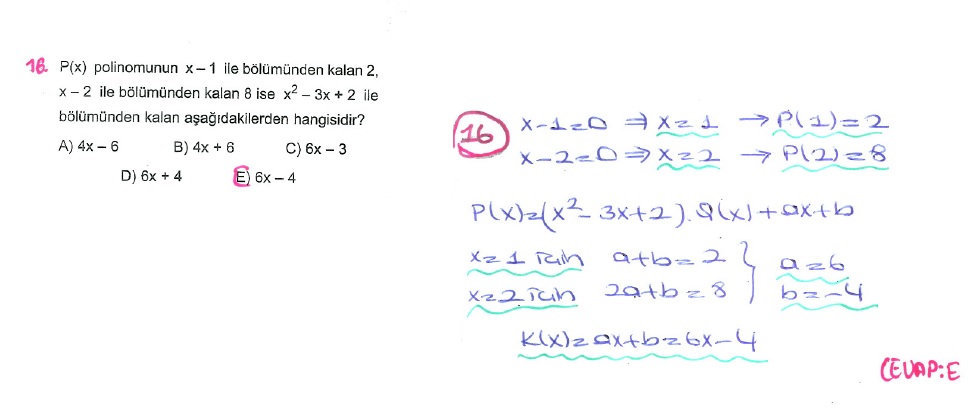 16. P(x) polinomunun x – 1 ile bölümünden kalan 2,
x – 2 ile bölümünden kalan 8 ise x² – 3x + 2 ile
bölümünden kalan aşağıdakilerden hangisidir?
A) 4x – 6 B) 4x + 6 C) 6x – 3
D) 6x + 4 E) 6x – 4
16 x-1=0 ⇒ x=1 → P(1)=2
x-2=0 ⇒ x=2 → P(2)=8
P(x)=(x²-3x+2).Q(x)+ax+b
x=1 için a+b=2 } a=6
x=2 için 2a+b=8 b=-4
K(x)=ax+b=6x-4
CEVAP:E